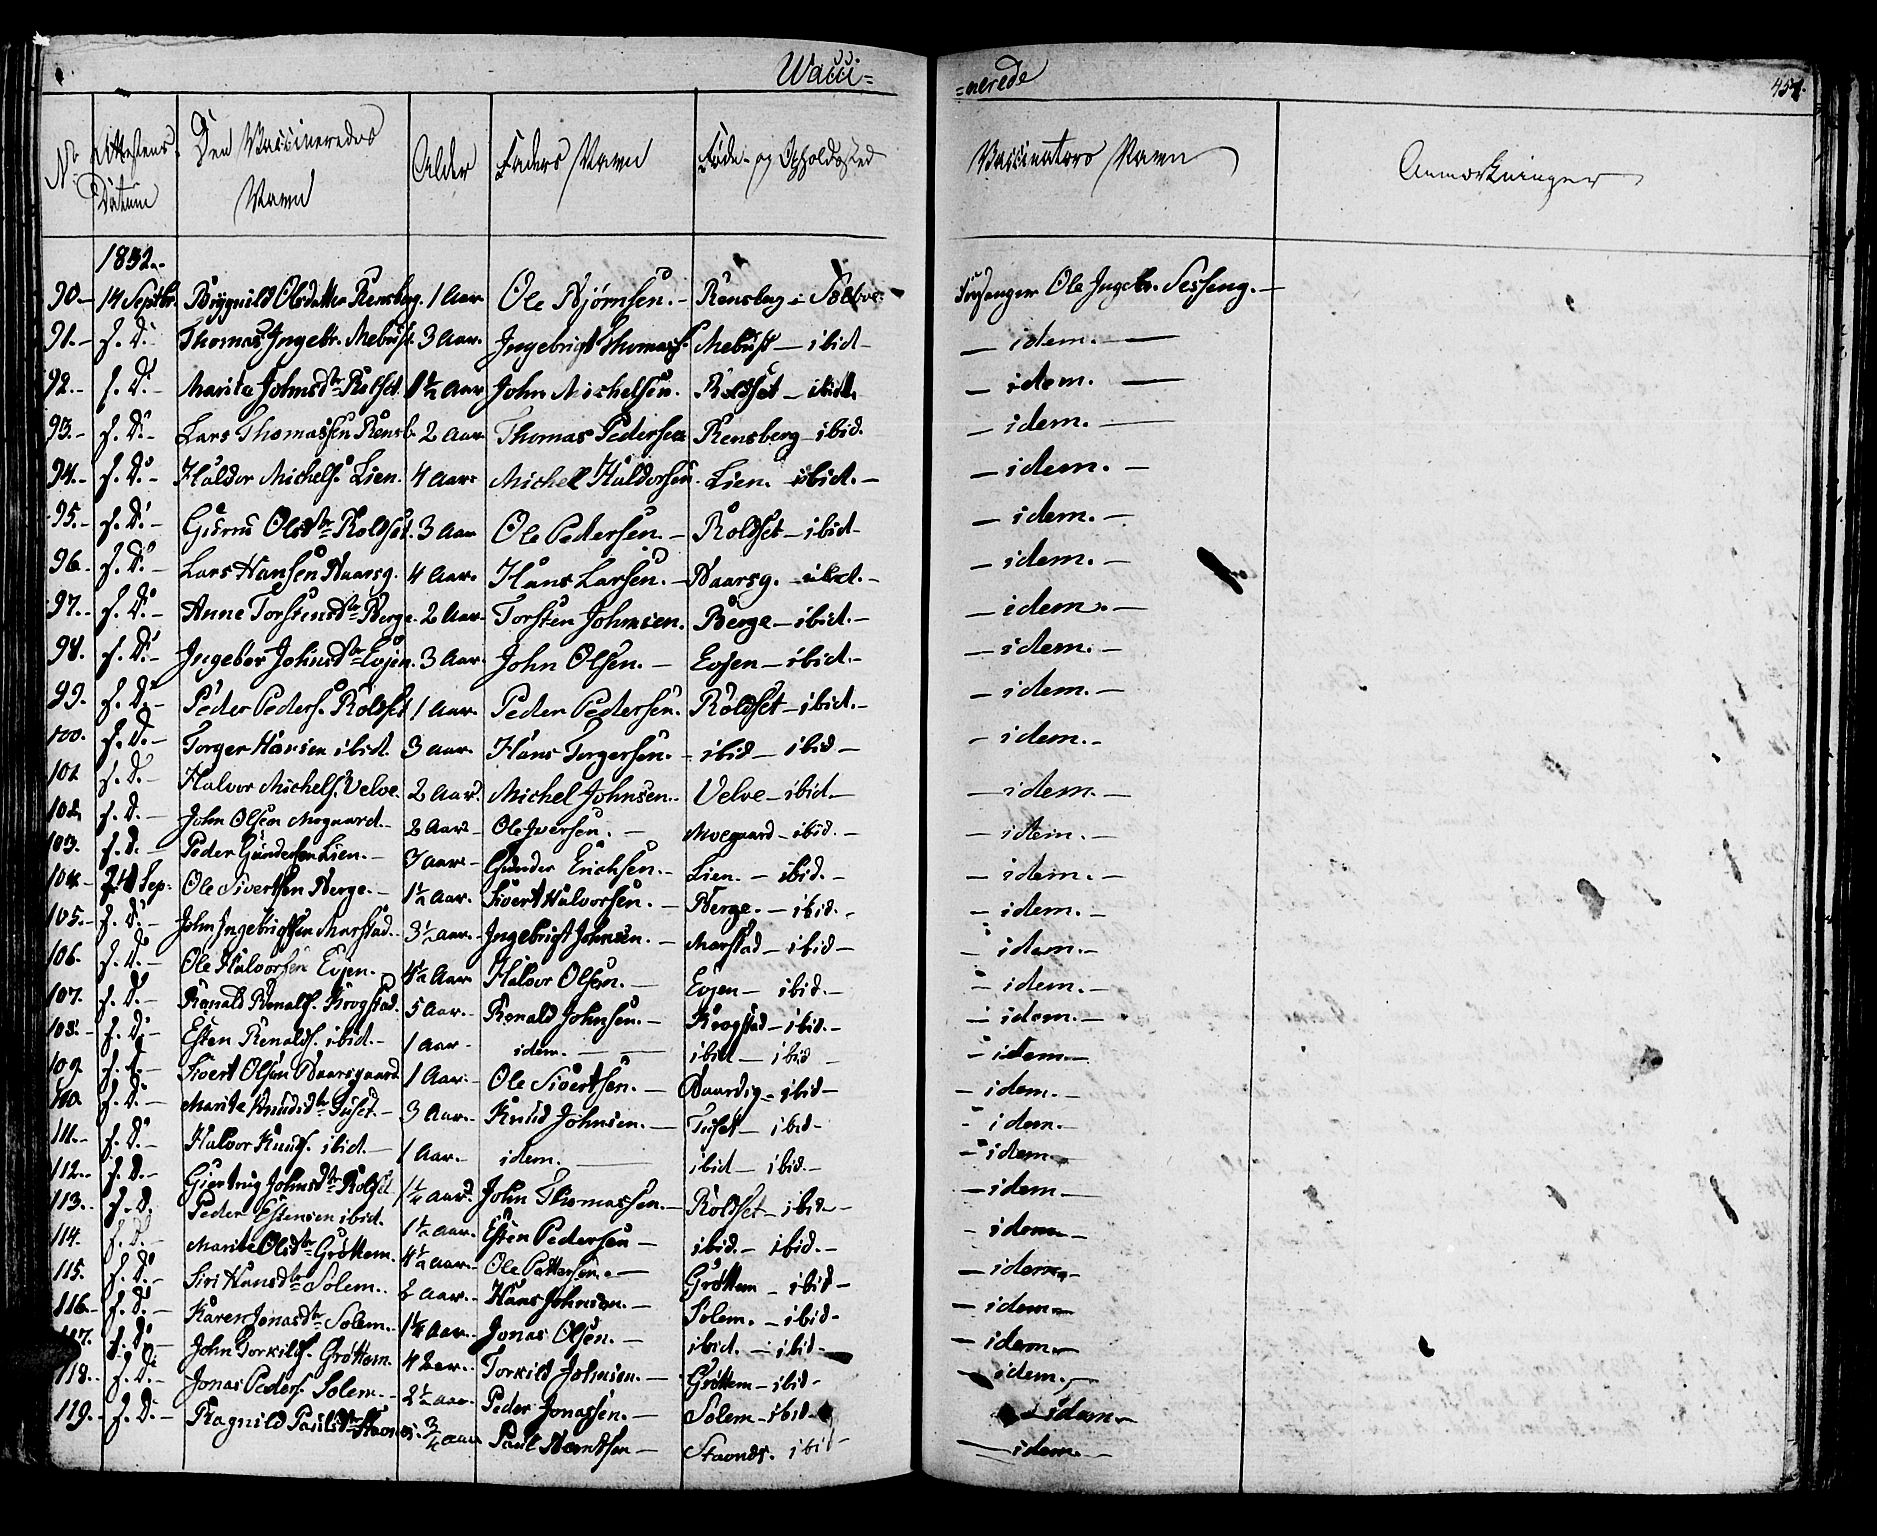 Wacci=
=nerede
451.
No Attestens Datum Den Vaccineredes Navn Alder Faders Navn Føde- og Opholdssted Vaccinators Navn Anmærkninger
1832.
90.- 14 Septbr. Brygnild Olsdatter Rensberg. 1 Aar Ole Bjørnsen. - Rensberg - Sølbye. Forsanger Ole Ingebr. Sesseng. -
91.- s. D. Thomas Ingebr. Mebust. 3 Aar. Ingebrigt Thomass. Mebust - ibid - - idem. -
92.- s. D. - Marite Johnsdtr Roldset. 1½ Aar John Michelsen. Roldset - ibid. - idem. -
93.- s. D. - Lars Thomassen Rensb. 2 Aar. Thomas Pedersen Rensberg - ibid. - idem. -
94.- s. D. - Haldor Michels. Lien. 4 Aar. Michel Haldorsen. Lien. - ibid. - - idem. -
95.- s. D. - Guru Olsdtr Roldset. 3 Aar Ole Pedersen. - Roldset - ibid - - idem. -
96.- s. D. - Lars Hansen Naarsg. 4 Aar. Hans Larsen. - Naarsg. - ibid. - - idem. -
97.- s. D. - Anne Torstensdtr Berge. 2 Aar. Torsten Johnsen. Berge - ibid. - - idem. -
98. s. D. - Ingebor Johnsdtr Evjen. 3 Aar. John Olsen. - Evjen - ibid. - - idem. -
99. s. D. - Peder Peders. Roldset 1 Aar. Peder Pedersen. Roldset - ibid. - - idem. -
100. s. D. - Torger Hansen ibid. 3 Aar. Hans Torgersen. - ibid - ibid - - idem. -
101 s. D. - Halvor Michels. Velve. 2 Aar. Michel Johnsen. Velve - ibid. - - idem. -
102. s. D. - John Olsen Moegaard. - 2 Aar - Ole Iversen. - Moegaard - ibid. - - idem. -
103. s. D. - Peder Gundersen Lien. - 3 Aar. - Gunder Erichsen. - Lien. - ibid. - - idem. -
104.- 24 Sep. Ole Sivertsen Berge. - 1½ Aar. Sivert Halvorsen. - Berge. - ibid. - - idem. -
105.- s. D. - John Ingebrigtsen Marstad. 3½ Aar. Ingebrigt Johnsen. - Marstad - ibid - - idem. -
106. s. D. - Ole Halvorsen Evjen. 4½ Aar Halvor Olsen. - Evjen - ibid. - - idem. -
107. s. D. - Renald Renalds. Krogstad. 5 Aar. - Renald Johnsen. - Krogstad - ibid. - - idem. -
108. - s. D. - Esten Renalds. ibid. - 1 Aar - idem. - ibid - ibid - - idem -
109. s. D. - Sivert Olsen Naarsgaard. 1 Aar. - Ole Sivertsen. - - ibid - - idem. -
110. s. D. - Marite Knudsdtr Tuset. - 3 Aar. - Knud Johnsen. - Tuset - ibid - - idem. -
111. - s. D. - Halvor Knuds. ibid. - 1 Aar. - idem. - ibid - ibid. - - idem. -
112. - s. D. - Giertrug Johnsdtr Roldset 1¼ Aar John Thomassen. - Roldset - ibid. - - idem -
113. - s. D. Peder Estensen ibid. 1½ Aar. Esten Pedersen - ibid. - ibid. - - idem -
114. s. D. - Marite Olsdtr Grøttem. 4½ Aar. Ole Pettersen. - Grøttem - ibid - - idem. -
115. s. D. - Siri Hansdtr Solem. 6 Aar. - Hans Johnsen. - Solem. - ibid - - idem -
116. - s. D. - Karen Jonasdtr Solem. - 1¼ Aar. Jonas Olsen. - ibid. - ibid - - idem. -
117. s. D. - John Torkilds. Grøttem. 4 Aar. - Torkild Johnsen. - Grøttem - ibid - - idem. -
118. - s. D. - Jonas Peders. Solem. - 2½ Aar. Peder Jonassen. - Solem - ibid - - idem. -
119. - s. D. - Ragnild Paulsdtr 3/4 Aar Paul Berntsen - ibid - - idem. -